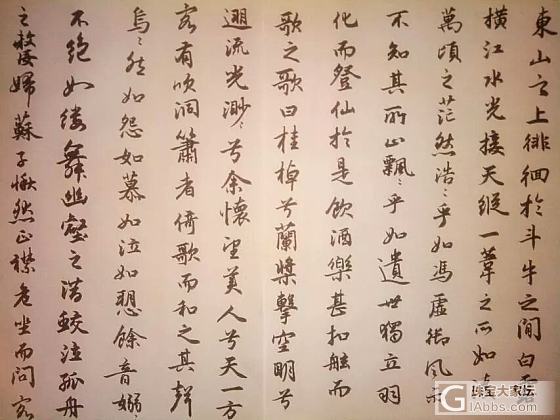 東山之上徘徊於斗牛之間白露
橫江水光接天縱一葦之所如
萬頃之茫然浩〻乎如馮虛御風
不知其所止飄〻乎如遺世獨立羽
化而登仙於是飲酒樂甚扣舷而
歌之歌曰桂棹兮蘭槳擊空明兮
遡流光渺〻兮余懷望美人兮天一方
客有吹洞簫者倚歌而和之其聲
烏〻然如怨如慕如泣如愬餘音嫋〻
不絕如縷舞幽壑之潛蛟泣孤舟
之嫠婦蘇子愀然正襟危坐而問客
珠宝大家坛